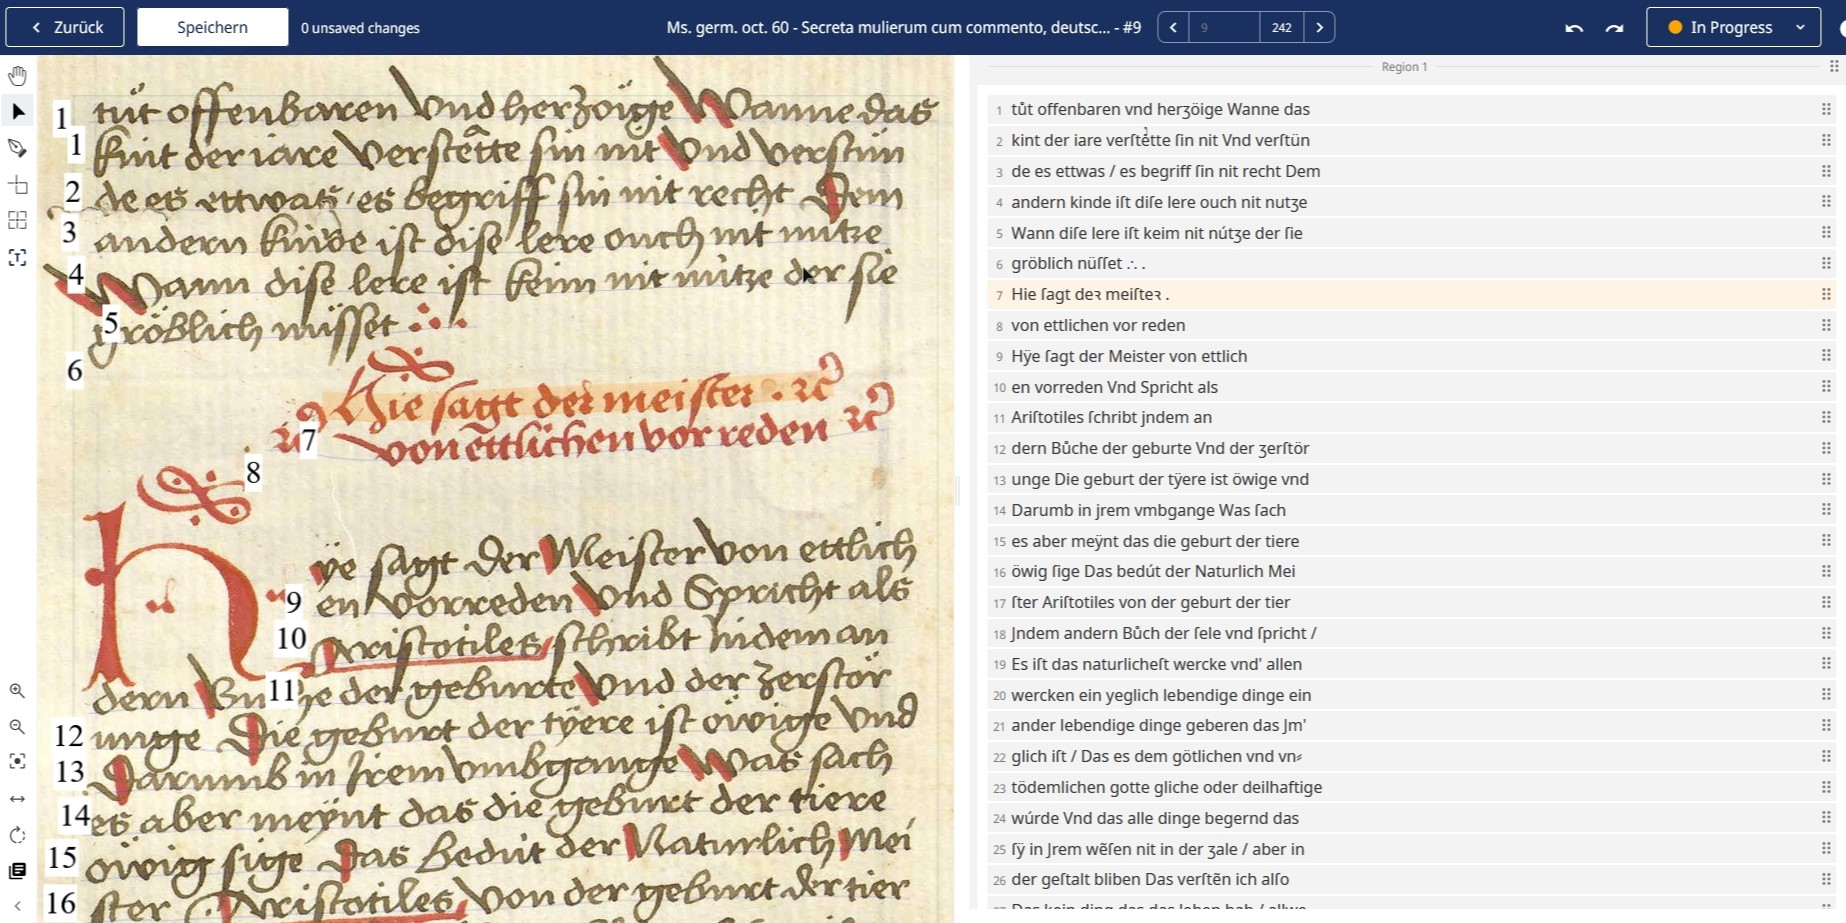 Zurück
Speichern
0 unsaved changes
Ms. germ. oct. 60 - Secreta mulierum cum commento, deutsc... - #9
9
242
In Progress
1 tůt offenbaren vnd herʒoige Wanne das
1 kint der iare verstètte sin nit Vnd verstün
2 de es ettwas / es begriff sin nit recht Dem
3 andern kinde ist dise lere ouch nit nutze
4 Wann dise lere ist keim nit nútze der sie
5 gröblich nüsset
6
7 Hie sagt der meister . ꝛc
8 von ettlichen vor reden ꝛc
9 Hÿe sagt der Meister von ettlich
10 en vorreden Vnd Spricht als
11 Aristotiles schribt jndem an
dern Bůche der geburte Vnd der zerstör
12 unge Die geburt der tÿere ist öwige vnd
13 Darumb in jrem vmbgange Was sach
14 es aber meÿnt das die geburt der tiere
15 öwig sige Das bedút der Naturlich Mei
16 ster Aristotiles von der geburt der tier
Region 1
1 tůt offenbaren vnd herʒöige Wanne das
2 kint der iare verſtètte ſin nit Vnd verſtün
3 de es ettwas / es begriff ſin nit recht Dem
4 andern kinde iſt diſe lere ouch nit nutʒe
5 Wann diſe lere iſt keim nit nútʒe der ſie
6 gröblich nüſſet .·. .
7 Hie ſagt deꝛ meiſteꝛ .
8 von ettlichen vor reden
9 Hÿe ſagt der Meister von ettlich
10 en vorreden Vnd Spricht als
11 Ariſtotiles ſchribt jndem an
12 dern Bůche der geburte Vnd der ʒerſtör
13 unge Die geburt der tÿere ist öwige vnd
14 Darumb in jrem vmbgange Was ſach
15 es aber meÿnt das die geburt der tiere
16 öwig ſige Das bedút der Naturlich Mei
17 ſter Ariſtotiles von der geburt der tier
18 Jndem andern Bůch der ſele vnd ſpricht /
19 Es iſt das naturlicheſt wercke vnd' allen
20 wercken ein yeglich lebendige dinge ein
21 ander lebendige dinge geberen das Jm'
22 glich iſt / Das es dem götlichen vnd vn⸗
23 tödemlichen gotte gliche oder deilhaftige
24 wúrde Vnd das alle dinge begernd das
25 ſÿ in Jrem wẽſen nit in der ʒale / aber in
26 der geſtalt bliben Das verſtẽn ich alſo